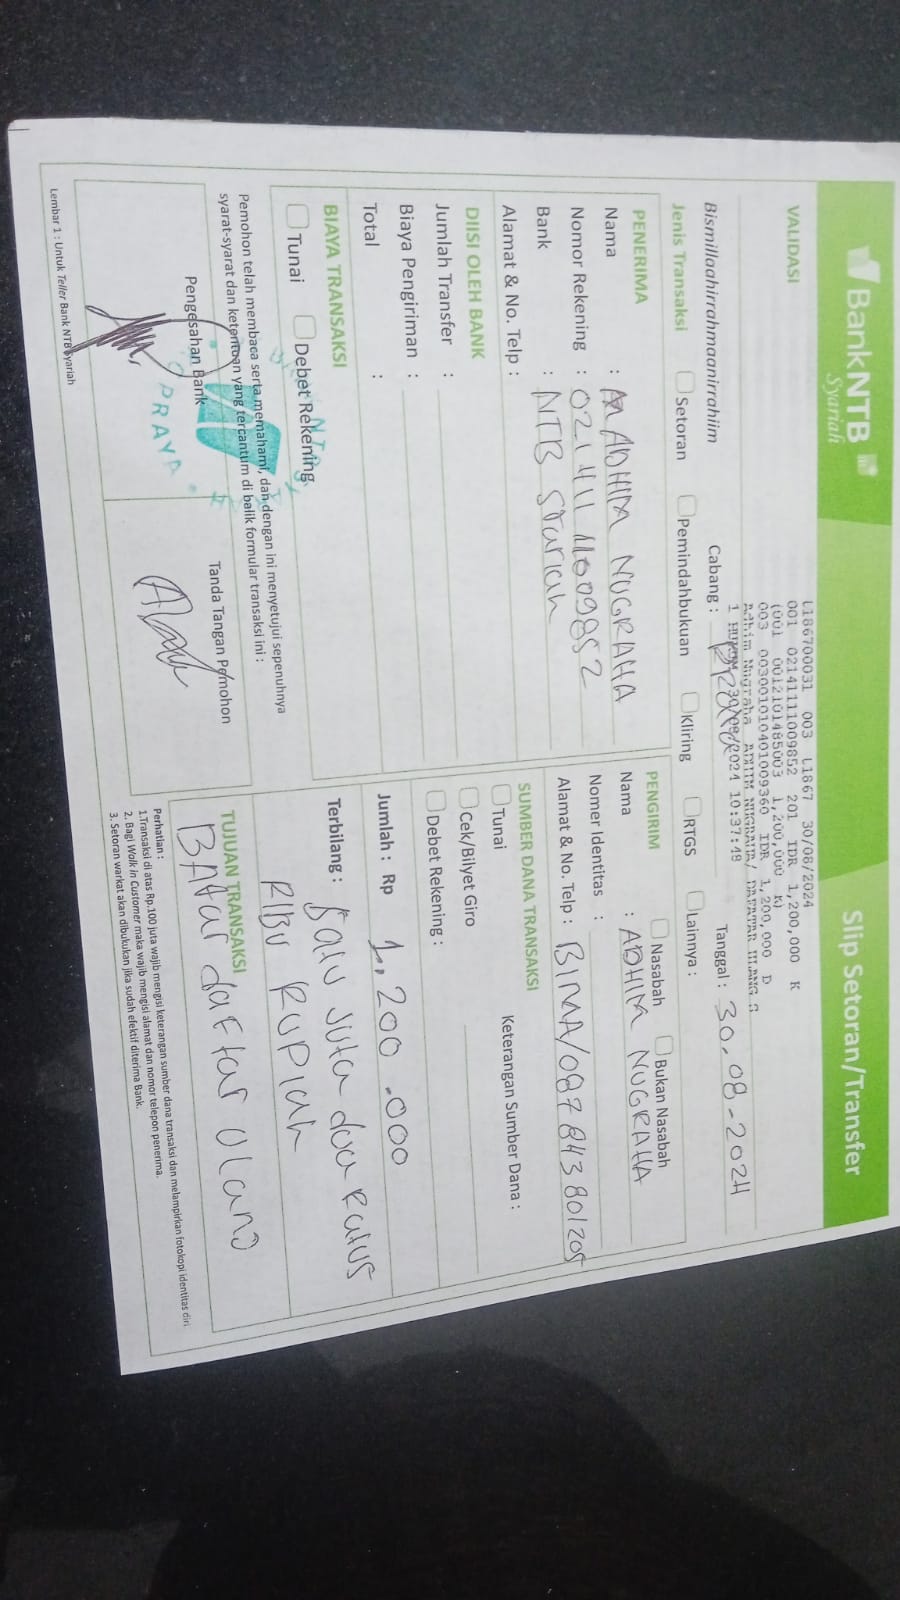 BankNTB
Syariah
Slip Setoran/Transfer
VALIDASI
L186700031 003 L1867 30/08/2024
001 0214111009852 201 IDR 1,200,000 K
(001 0012101485003 1,200,000 K)
003 0030010401009360 IDR 1,200,000 D
Adhim Nugraha
1 30/08/2024 10:37:48
Bismillaahirrahmaanirrahiim
Cabang :
Tanggal : 30-08-2024
Jenis Transaksi
Setoran
Pemindahbukuan
Kliring
RTGS
Lainnya :
PENERIMA
Nama : ADHIM NUGRAHA
Nomor Rekening : 021 411 11009852
Bank : NTB Syariah
Alamat & No. Telp :
PENGIRIM
Nasabah
Bukan Nasabah
Nama : ADHIM NUGRAHA
Nomer Identitas :
Alamat & No. Telp : BIMA/087843801205
DIISI OLEH BANK
Jumlah Transfer :
Biaya Pengiriman :
Total :
SUMBER DANA TRANSAKSI
Tunai
Keterangan Sumber Dana :
Cek/Bilyet Giro
Debet Rekening :
BIAYA TRANSAKSI
Tunai
Debet Rekening
Jumlah : Rp 1.200.000
Terbilang : Satu Juta dua Ratus
RIBU RUPiah
Pemohon telah membaca serta memahami, dan dengan ini menyetujui sepenuhnya
syarat-syarat dan ketentuan yang tercantum di balik formular transaksi ini :
Pengesahan Bank
PRAYA
Tanda Tangan Pemohon
TUJUAN TRANSAKSI
BAYar daftar Ulang
Perhatian :
1.Transaksi di atas Rp.100 juta wajib mengisi keterangan sumber dana transaksi dan melampirkan fotokopi identitas diri
2. Bagi Walk in Customer maka wajib mengisi alamat dan nomor telepon penerima.
3. Setoran warkat akan dibukukan jika sudah efektif diterima Bank.
Lembar 1 : Untuk Teller Bank NTB Syariah